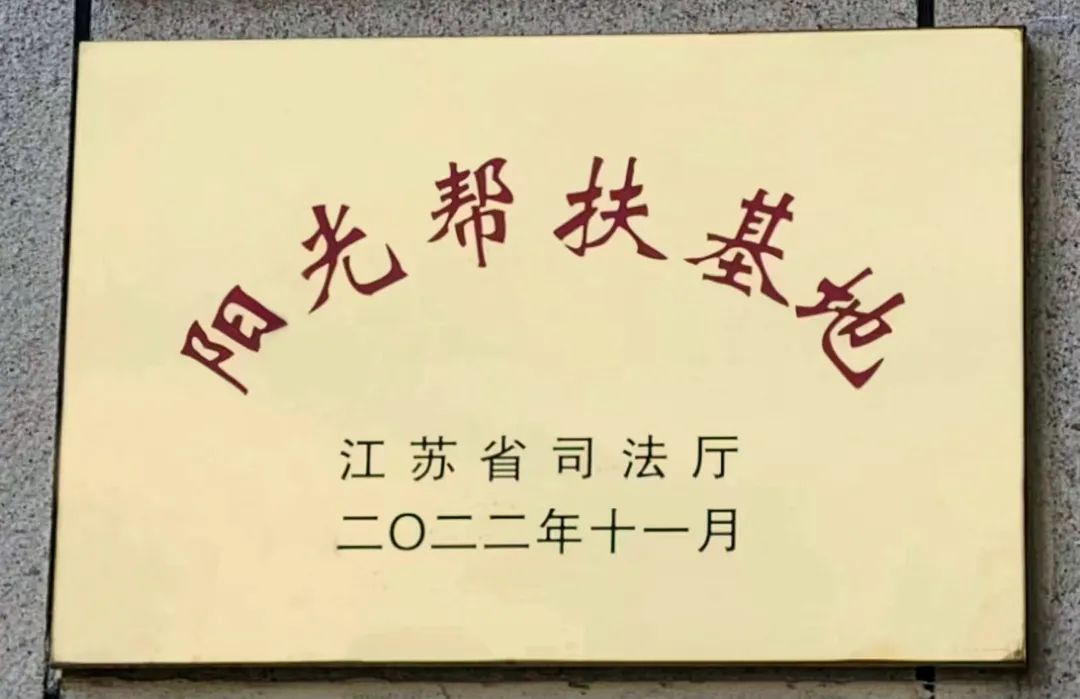 阳光帮扶基地
江苏省司法厅
二〇二二年十一月